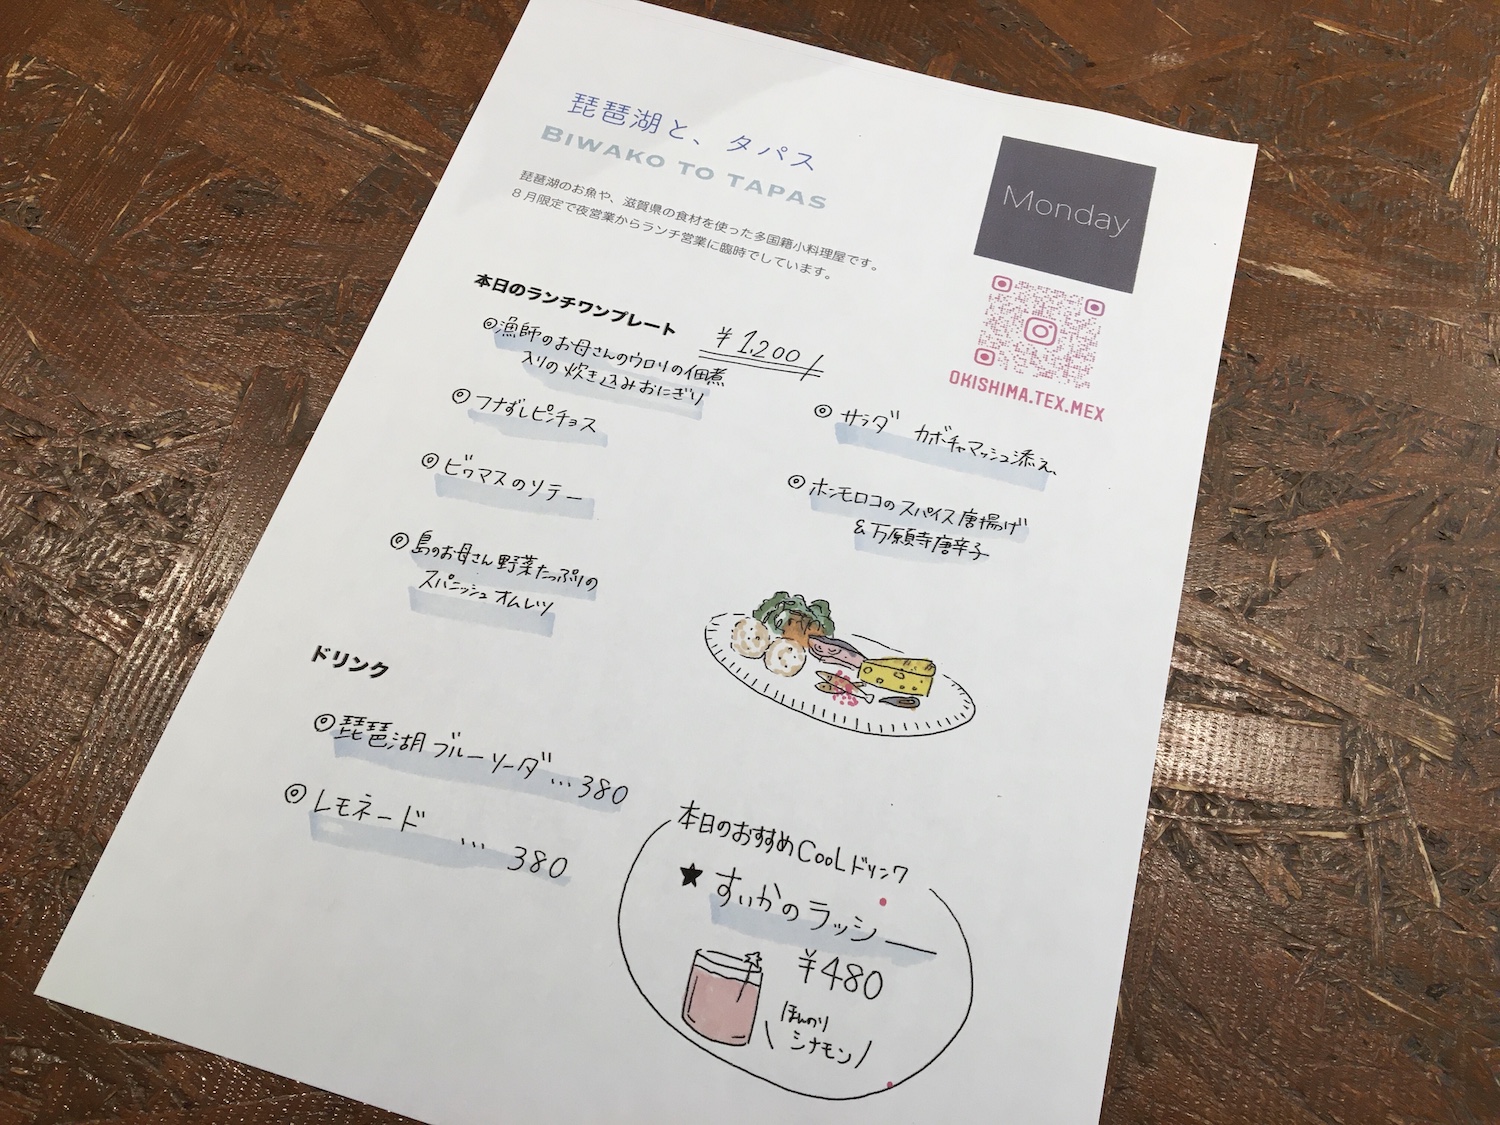 琵琶湖と、タパス
BIWAKO TO TAPAS
琵琶湖のお魚や、滋賀県の食材を使った多国籍小料理屋です。
８月限定で夜営業からランチ営業に臨時でしています。
Monday
OKISHIMA.TEX.MEX
本日のランチワンプレート
¥1,200/
◎漁師のお母さんのウロリの佃煮
入りの炊き込みおにぎり
◎フナずしピンチョス
◎ビワマスのソテー
◎島のお母さん野菜たっぷりの
スパニッシュオムレツ
◎サラダ カボチャマッシュ添え
◎ホンモロコのスパイス唐揚げ
&万願寺唐辛子
ドリンク
◎琵琶湖ブルーソーダ…380
◎レモネード …380
本日のおすすめCOOLドリンク
★すいかのラッシー
¥480
ほんのり
シナモン